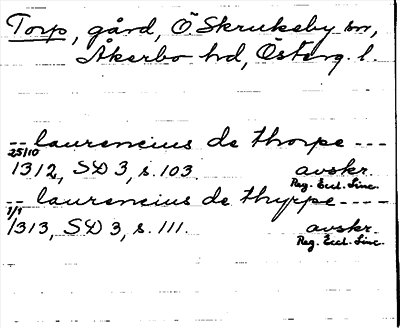 Torp, gård, Ö Skrukeby sn,
Åkerbo hd, Österg. l.
-- laurencius de thorpe ---
25/10
1312, SD 3, s. 103. avskr.
Reg. Eccl. Linc.
-- laurencius de thyrpe ----
1/1
1313, SD 3, s. 111. avskr.
Reg. Eccl. Linc.